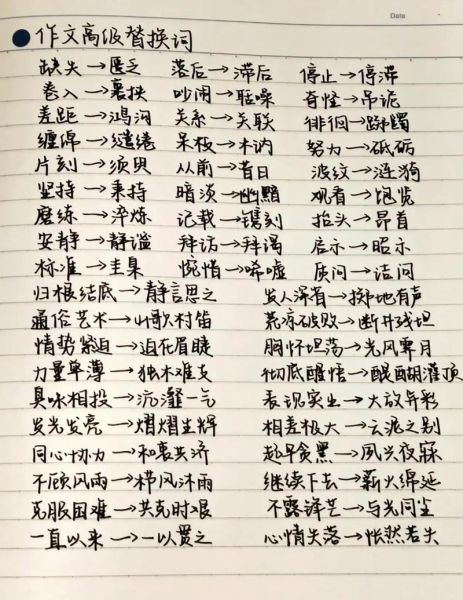 Date
●作文高级替换词
缺失→匮乏 落后→滞后 停止→停滞
卷入→裹挟 吵闹→聒噪 奇怪→吊诡
差距→鸿沟 关系→关联 徘徊→踯躅
缠绵→缱绻 呆板→木讷 努力→砥砺
片刻→须臾 从前→昔日 波纹→涟漪
坚持→秉持 暗淡→幽黯 观看→饱览
磨练→淬炼 记载→镌刻 抬头→昂首
安静→静谧 拜访→拜谒 启示→昭示
标准→圭臬 惋惜→唏嘘 质问→诘问
归根结底→静言思之 发人深省→掷地有声
通俗艺术→山歌村笛 荒凉破败→断井残垣
情势紧迫→迫在眉睫 胸怀坦荡→光风霁月
力量单薄→独木难支 彻底醒悟→醍醐灌顶
臭味相投→沆瀣一气 表现突出→大放异彩
发光发亮→熠熠生辉 相差极大→云泥之别
同心协力→和衷共济 起早贪黑→夙兴夜寐
不顾风雨→栉风沐雨 继续下去→薪火绵延
克服困难→共克时艰 不露锋芒→与光同尘
一直以来→一以贯之 心情失落→怅然若失